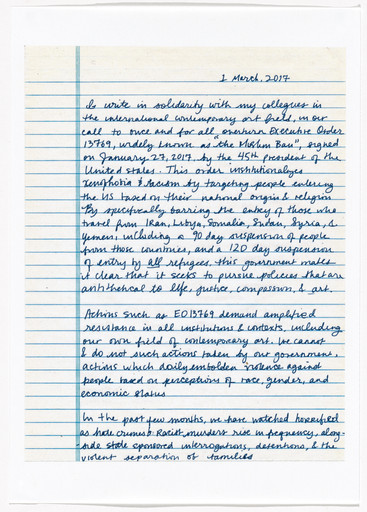 1 March, 2017
I write in solidarity with my collegues in
the international contemporary art field, in our
call to once and for all overturn Executive Order
13769, widely known as "the Muslim Ban", signed
on January 27, 2017, by the 45th president of the
United States. This order institutionalizes
xenophobia & racism by targeting people entering
the US based on their national origin & religion
By specifically barring the entry of those who
travel from Iran, Libya, Somalia, Sudan, Syria, &
Yemen, including a 90 day suspension of people
from those countries, and a 120 day suspension
of entry by all refugees, this government makes
it clear that it seeks to pursue policies that are
antithetical to life, justice, compassion, & art.
Actions such as EO13769 demand amplified
resistance in all institutions & contexts, including
our own field of contemporary art. We cannot
& do not such actions taken by our government,
actions which daily embolden violence against
people based on perceptions of race, gender, and
economic status
In the past few months, we have watched horrified
as hate crimes & Racist murders rise in frequency, along-
side state sponsored interrogations, detentions, & the
violent separation of families